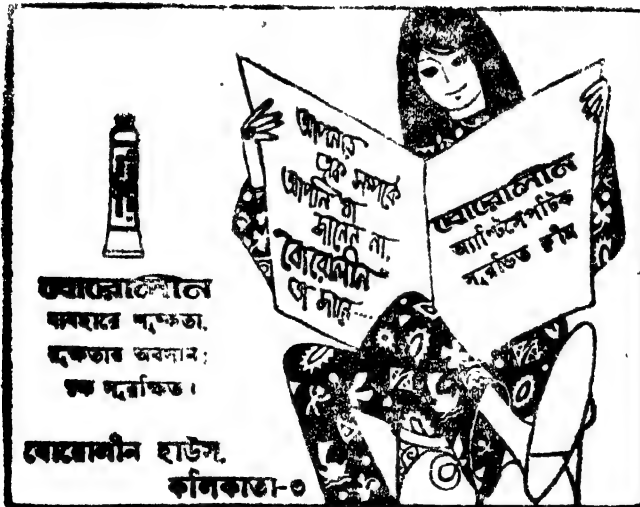 আপনার
ত্বক সম্পর্কে
আপনি যা
জানেন না,
বোরোলীন
তা জানে...
বোরোলীন
অ্যান্টিসেপটিক
সুরভিত ক্রীম
বোরোলীন
ব্যবহারে শুষ্কতা,
রুক্ষতার অবসান;
ত্বক সুরক্ষিত।
বোরোলীন হাউস,
কলিকাতা-৩